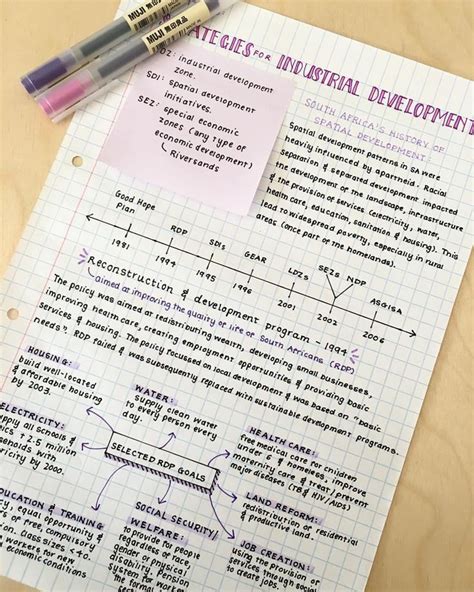 MUJI 無印良品
MUJI 無印良品
ATEGIES FOR INDUSTRIAL DEVELOPMENT
DZ: industrial development
zone.
SDI: spatial development
initiatives.
SEZ: special economic
zones (any type of
economic development)
↳ Riversands
SOUTH AFRICA'S HISTORY OF
SPATIAL DEVELOPMENT
Spatial development patterns in SA were
heavily influenced by apartheid. Racial
Separation & separated development impacted
the development of the landscape, infrastructure
& the provision of services (electricity, water,
health care, education, sanitation & housing). This
lead to widespread poverty, especially in rural
areas (once part of the homelands).
Good Hope
Plan
RDP
SDIs
GEAR
LDZs
SEZs
NDP
ASGISA
1981
1994
1995
1996
2001
2002
2006
Reconstruction & development program - 1994
↳ aimed at improving the quality of life of South Africans (RDP)
The policy was aimed at redistributing wealth, developing small businesses,
improving health care, creating employment opportunities & providing basic
services & housing. The policy focussed on local development & was based on "basic
needs". RDP failed & was subsequently replaced with sustainable development programs.
HOUSING:
build well-located
& affordable housing
by 2003.
WATER:
supply clean water
to every person every
day.
ELECTRICITY:
supply all schools &
& 2.5 million
by 2000.
SELECTED RDP GOALS
HEALTH CARE:
free medical care for children
under 6 & homeless, improve
maternity care & treat/prevent
major diseases (TB & HIV/AIDS)
LAND REFORM:
redistribution of residential
& productive land.
EDUCATION & TRAINING
equal opportunity &
of free, compulsory
classes <40.
workers for new
economic conditions
SOCIAL SECURITY/
WELFARE:
to provide for people
regardless of race,
gender or physical
disability. Pension
system for workers in
the formal
JOB CREATION:
using the provision of
services through social
to create jobs.